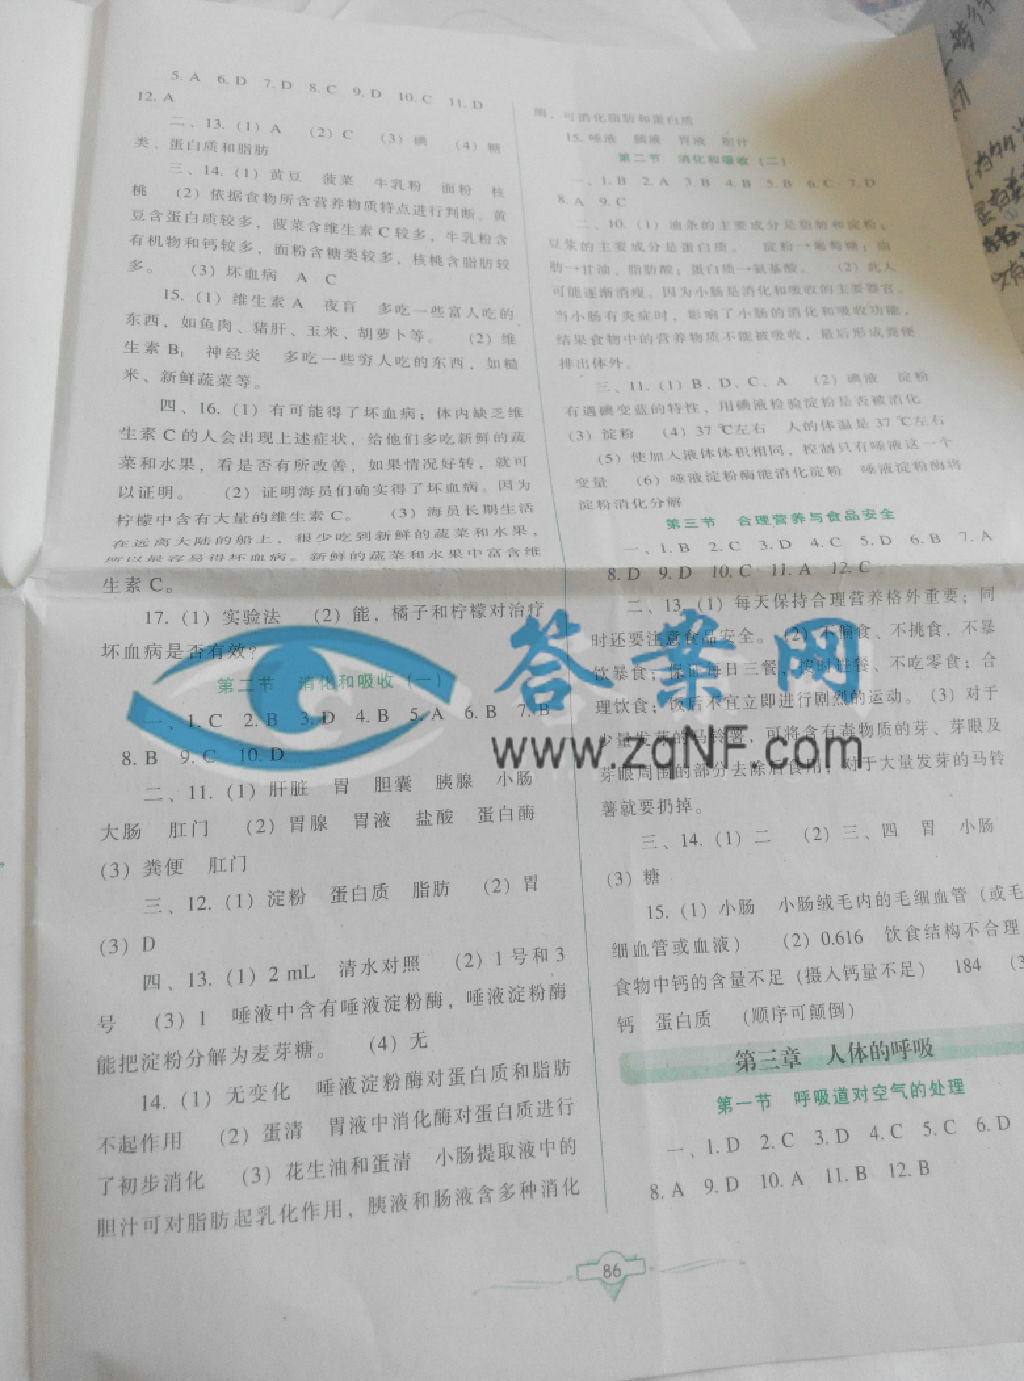 5. A 6. D 7. D 8. C 9. D 10. C 11. D
12. A
二、13. (1) A (2) C (3) 碘 (4) 糖
类、蛋白质和脂肪
三、14. (1) 黄豆 菠菜 牛乳粉 面粉 核
桃 (2) 依据食物所含营养物质特点进行判断。黄
豆含蛋白质较多，菠菜含维生素C较多，牛乳粉含
有机物和钙较多，面粉含糖类较多，核桃含脂肪较
多。 (3) 坏血病 A C
15. (1) 维生素A 夜盲 多吃一些富人吃的
东西，如鱼肉、猪肝、玉米、胡萝卜等。 (2) 维
生素B₁ 神经炎 多吃一些穷人吃的东西，如糙
米、新鲜蔬菜等。
四、16. (1) 有可能得了坏血病；体内缺乏维
生素C的人会出现上述症状，给他们多吃新鲜的蔬
菜和水果，看是否有所改善，如果情况好转，就可
以证明。 (2) 证明海员们确实得了坏血病。因为
柠檬中含有大量的维生素C。 (3) 海员长期生活
在远离大陆的船上，很少吃到新鲜的蔬菜和水果，
所以最容易得坏血病。新鲜的蔬菜和水果中富含维
生素C。
17. (1) 实验法 (2) 能，橘子和柠檬对治疗
坏血病是否有效？
第二节 消化和吸收（一）
一、1. C 2. B 3. D 4. B 5. A 6. B 7. B
8. B 9. C 10. D
二、11. (1) 肝脏 胃 胆囊 胰腺 小肠
大肠 肛门 (2) 胃腺 胃液 盐酸 蛋白酶
(3) 粪便 肛门
三、12. (1) 淀粉 蛋白质 脂肪 (2) 胃
(3) D
四、13. (1) 2 mL 清水对照 (2) 1号和3
号 (3) 1 唾液中含有唾液淀粉酶，唾液淀粉酶
能把淀粉分解为麦芽糖。 (4) 无
14. (1) 无变化 唾液淀粉酶对蛋白质和脂肪
不起作用 (2) 蛋清 胃液中消化酶对蛋白质进行
了初步消化 (3) 花生油和蛋清 小肠提取液中的
胆汁可对脂肪起乳化作用，胰液和肠液含多种消化
酶，可消化脂肪和蛋白质
15. 唾液 肠液 胃液 胆汁
第二节 消化和吸收（二）
一、1. B 2. A 3. B 4. B 5. B 6. C 7. D
8. A 9. C
二、10. (1) 油条的主要成分是脂肪和淀粉；
豆浆的主要成分是蛋白质。 淀粉→葡萄糖；脂
肪→甘油、脂肪酸；蛋白质→氨基酸。 (2) 此人
可能逐渐消瘦。因为小肠是消化和吸收的主要器官。
当小肠有炎症时，影响了小肠的消化和吸收功能，
结果食物中的营养物质不能被吸收，最后形成粪便
排出体外。
三、11. (1) B、D、C、A (2) 碘液 淀粉
有遇碘变蓝的特性，用碘液检验淀粉是否被消化
(3) 淀粉 (4) 37 ℃左右 人的体温是37 ℃左右
(5) 使加入液体体积相同，控制只有唾液这一个
变量 (6) 唾液淀粉酶能消化淀粉 唾液淀粉酶将
淀粉消化分解
第三节 合理营养与食品安全
一、1. B 2. C 3. D 4. C 5. D 6. B 7. A
8. D 9. D 10. C 11. A 12. C
二、13. (1) 每天保持合理营养格外重要；同
时还要注意食品安全。 (2) 不偏食、不挑食，不暴
饮暴食；保证每日三餐，按时进餐、不吃零食；合
理饮食；饭后不宜立即进行剧烈的运动。 (3) 对于
少量发芽的马铃薯，可将含有毒物质的芽、芽眼及
芽眼周围的部分去除后食用；对于大量发芽的马铃
薯就要扔掉。
三、14. (1) 二 (2) 三、四 胃 小肠
(3) 糖
15. (1) 小肠 小肠绒毛内的毛细血管（或毛
细血管或血液） (2) 0.616 饮食结构不合理
食物中钙的含量不足（摄入钙量不足） 184 (3
钙 蛋白质 （顺序可颠倒）
第三章 人体的呼吸
第一节 呼吸道对空气的处理
一、1. D 2. C 3. D 4. C 5. C 6. D
8. A 9. D 10. A 11. B 12. B
86
答案网
www.zqNF.com